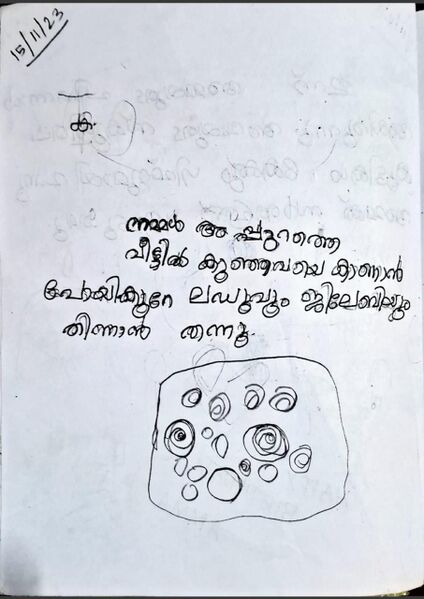 15/11/23
ക
നമ്മൾ അപ്പുറത്തെ
വീട്ടിൽ കുഞ്ഞവയെ കാണാൻ
പോയികുറേ ലഡുവും ജിലേബിയും
തിന്നാൻ തന്നു.